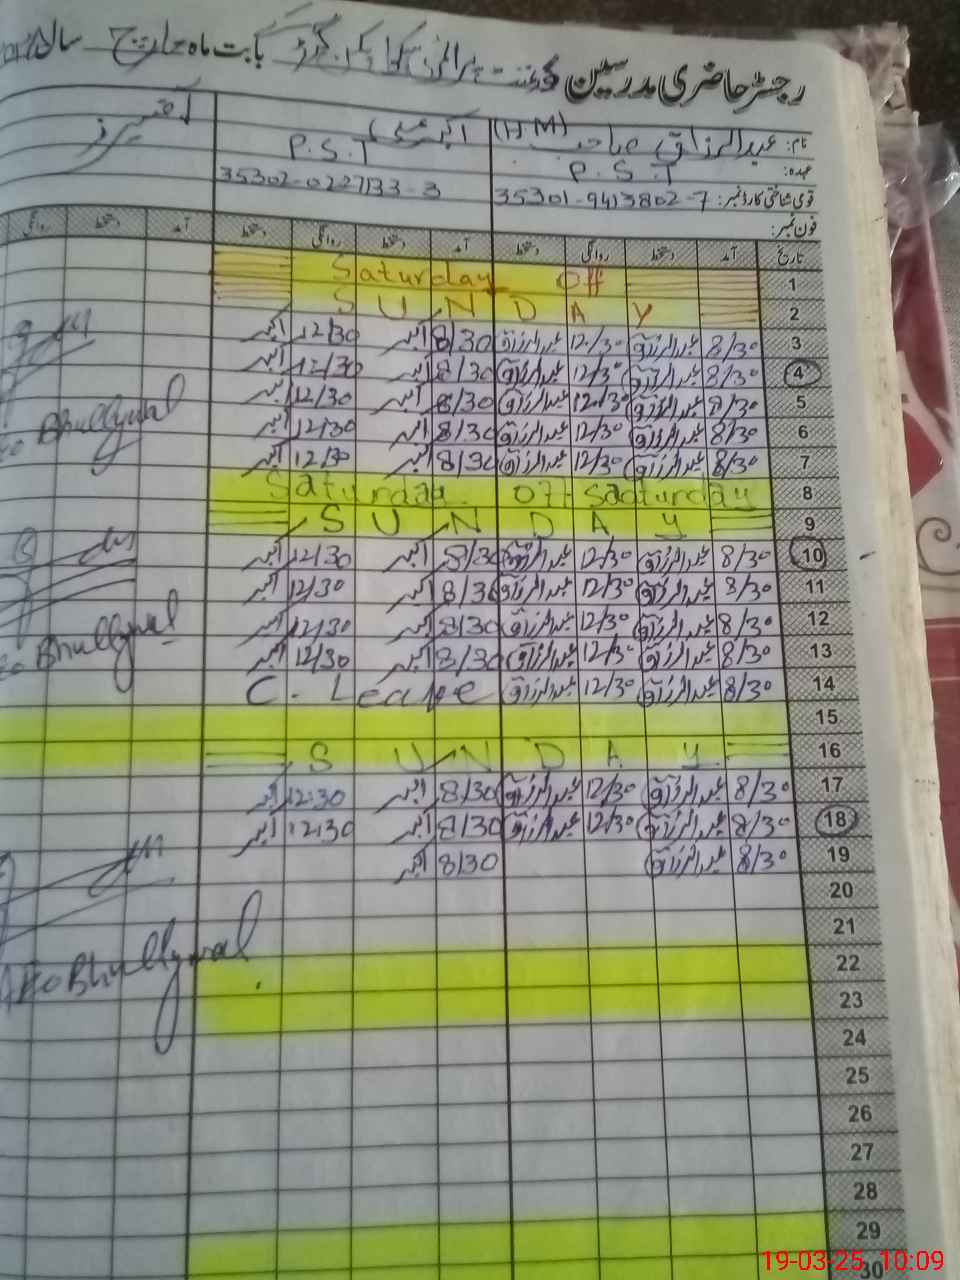 رجسٹر حاضری مدرسین گورنمنٹ پرائمری سکول بابت ماہ مارچ سال
نام: عبدالرزاق صاحب (H.M) اکبر علی
عہدہ: P.S.T P.S.T
قومی شناختی کارڈ نمبر: 35301-9413802-7 35302-0227133-3
فون نمبر:
تاریخ آمد دستخط روانگی دستخط آمد دستخط روانگی دستخط آمد دستخط روانگی
1 Saturday Off
2 SUNDAY
3 8/30 عبدالرزاق 12/30 عبدالرزاق 8/30 اکبر 12/30 اکبر
4 8/30 عبدالرزاق 12/30 عبدالرزاق 8/30 اکبر 12/30 اکبر
5 8/30 عبدالرزاق 12/30 عبدالرزاق 8/30 اکبر 12/30 اکبر
6 8/30 عبدالرزاق 12/30 عبدالرزاق 8/30 اکبر 12/30 اکبر
Bhullywal
7 8/30 عبدالرزاق 12/30 عبدالرزاق 8/30 اکبر 12/30 اکبر
8 Saturday off saaturday
9 SUNDAY
10 8/30 عبدالرزاق 12/30 عبدالرزاق 8/30 اکبر 12/30 اکبر
11 8/30 عبدالرزاق 12/30 عبدالرزاق 8/30 اکبر 12/30 اکبر
12 8/30 عبدالرزاق 12/30 عبدالرزاق 8/30 اکبر 12/30 اکبر
Bhullywal
13 8/30 عبدالرزاق 12/30 عبدالرزاق 8/30 اکبر 12/30 اکبر
14 8/30 عبدالرزاق 12/30 عبدالرزاق C. Leave
15
16 SUNDAY
17 8/30 عبدالرزاق 12/30 عبدالرزاق 8/30 اکبر 12:30 اکبر
18 8/30 عبدالرزاق 12/30 عبدالرزاق 8/30 اکبر 12:30 اکبر
19 8/30 عبدالرزاق 8/30 اکبر
20
21
22
AEO Bhullywal
23
24
25
26
27
28
29
30
19-03-25 10:09